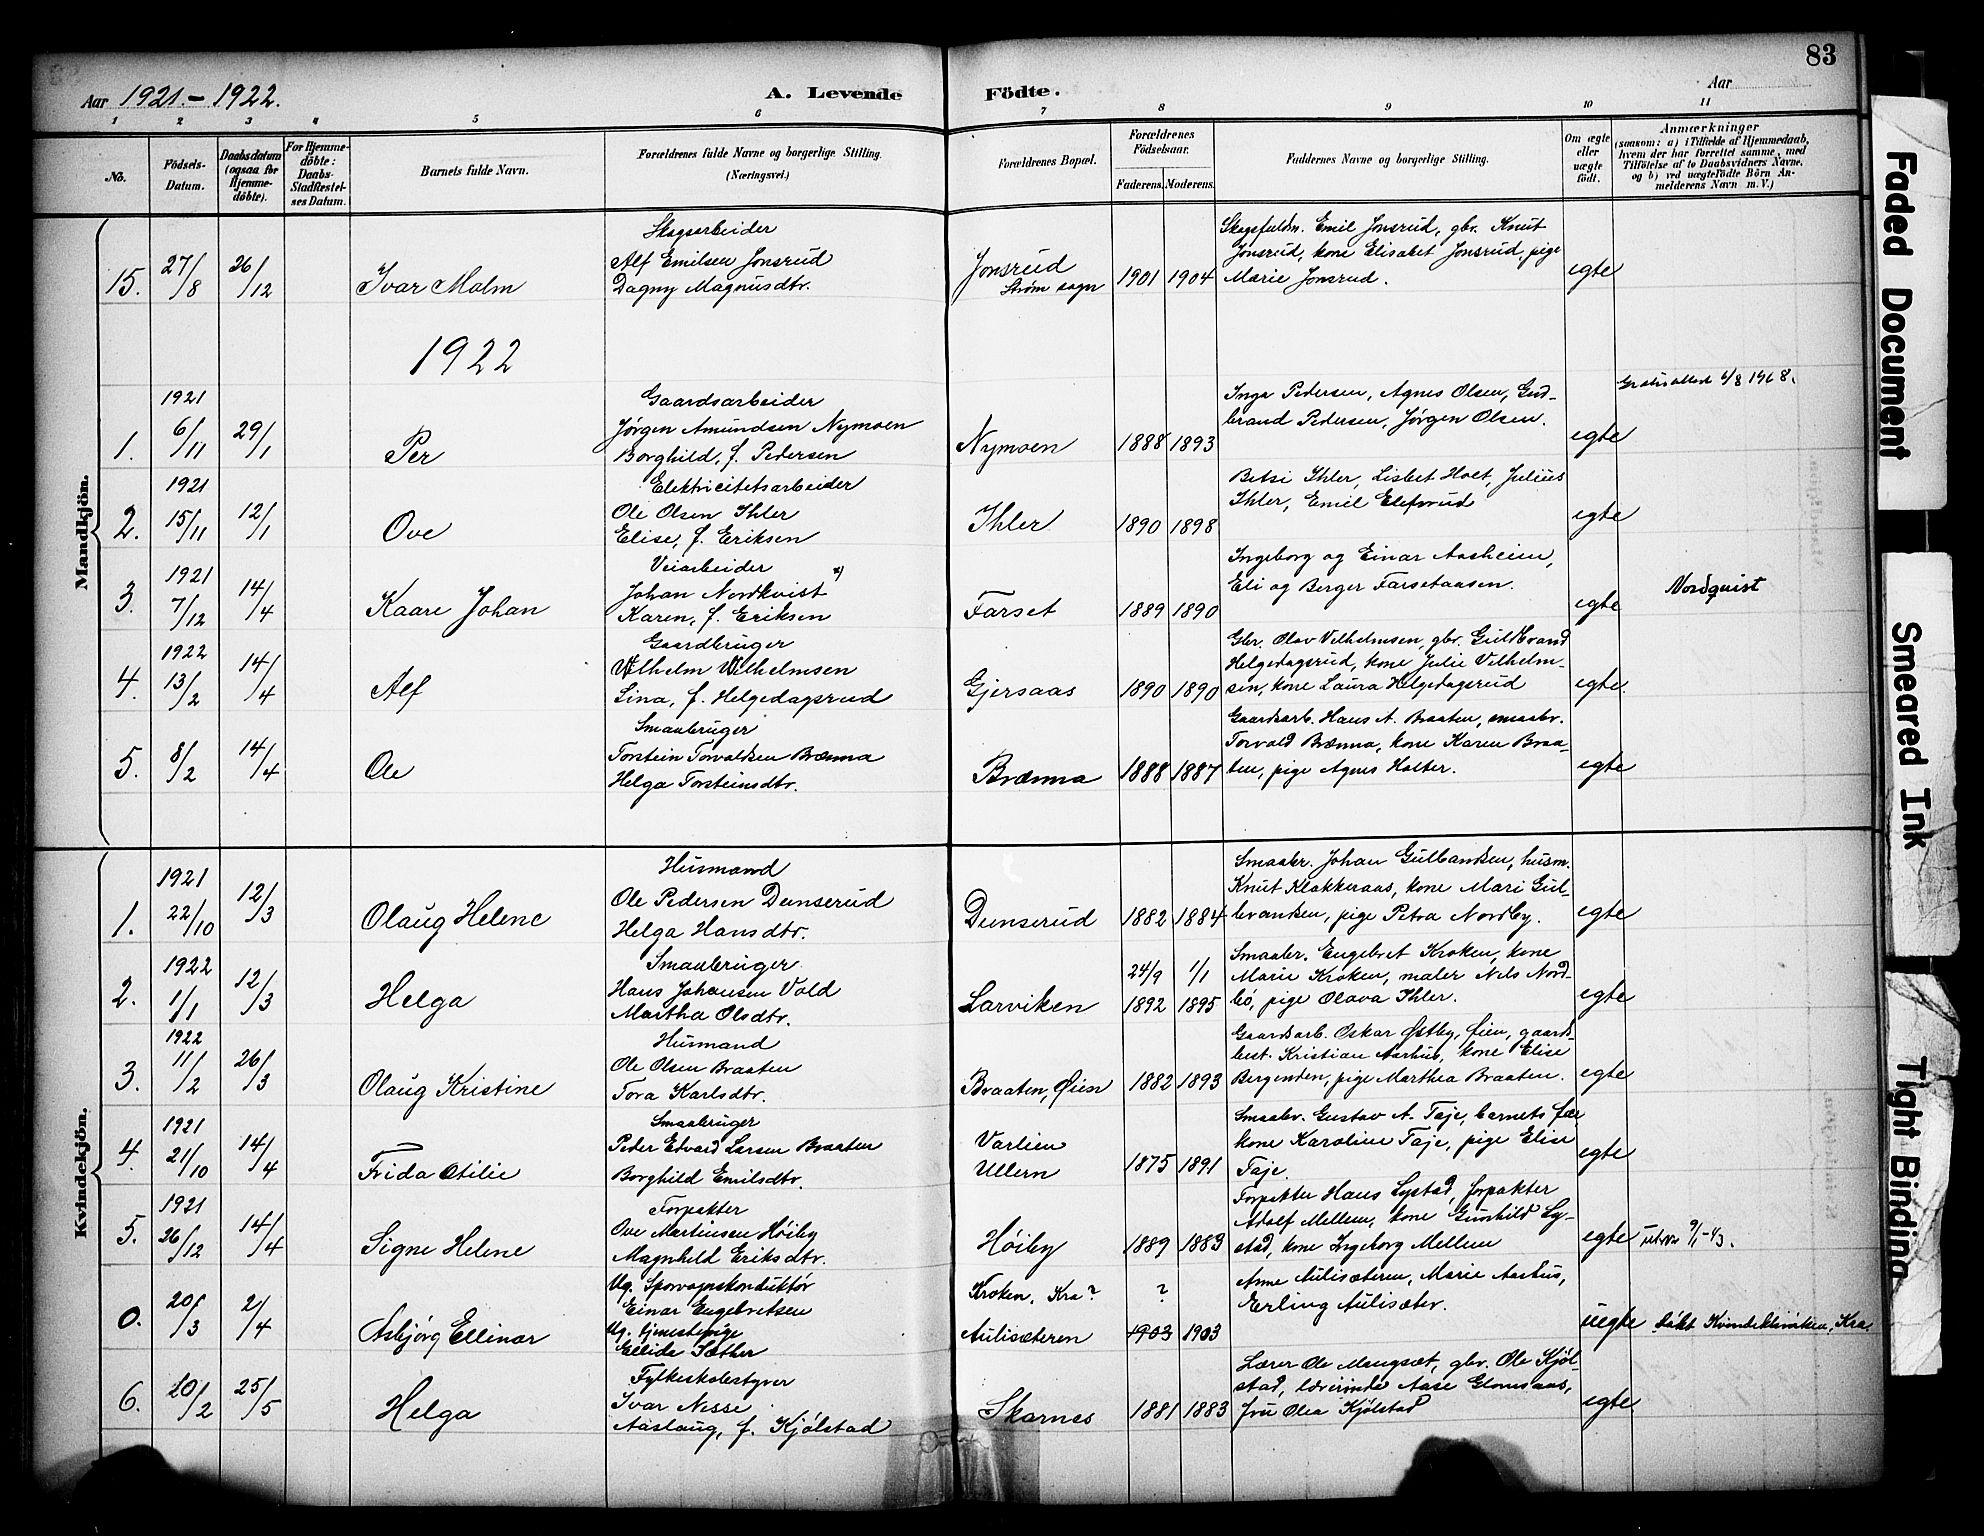 83
Aar 1921.-1922.
A. Levende Födte.
Aar
1 2 3 4 5 6 7 8 9 10 11
No.
Födsels-Datum.
Daabsdatum (ogsaa for Hjemme-döbte).
For Hjemme-döbte: Daabs-Stadfæstel-ses Datum.
Barnets fulde Navn.
Forældrenes fulde Navne og borgerlige Stilling. (Næringsvei.)
Forældrenes Bopæl.
Forældrenes Födselsaar.
Faderens. Moderens.
Faddernes Navne og borgerlige Stilling.
Om ægte eller uægte födt.
Anmærkninger
(saasom: a) i Tilfælde af Hjemmedaab, hvem der har forrettet samme, med Tilföielse af to Daabsvidners Navne, og b) ved uægtefödte Börn An-melderens Navn m. V.)
Mandkjön.
15. 27/8 26/12 Ivar Malm
Skogsarbeider
Alf Emilsen Jonsrud
Dagny Magnusdtr.
Jonsrud
Strøm sogn
1901 1904
Skogsfuldm. Emil Jonsrud, gbr. Knut
Jonsrud, kone Elisabet Jonsrud, pige
Marie Jonsrud.
egte
1922
1. 1921 6/11 29/1 Per
Gaardsarbeider
Jørgen Amundsen Nymoen
Borghild, f. Pedersen
Nymoen
1888 1893
Inga Pedersen, Agnes Olsen, Gud-
brand Pedersen, Jørgen Olsen.
egte
/8 1968.
2. 1921 15/11 12/1 Ove
Elektricitetsarbeider
Ole Olsen Ihler
Elise, f. Eriksen
Ihler
1890 1898
Betsi Ihler, Lisbet Hoet, Julius
Ihler, Emil
egte
3. 1921 7/12 14/4 Kaare Johan
Veiarbeider
Johan Nordkvist x)
Karen, f. Eriksen
Farset
1889 1890
Ingeborg og Einar Aasheim,
Eli og Berger Farsetaasen.
egte
Nordquist
4. 1922 13/2 14/4 Alf
Gaardbruger
Vilhelm Vilhelmsen
Lina, f. Helgedagsrud
Gjersaas
1890 1890
Gbr. Olav Vilhelmsen, gbr. Guldbrand
Helgedagsrud, kone Julie Vilhelm-
sen, kone Laura Helgedagsrud
egte.
5. 8/2 14/4 Ole
Smaabruger
Torstein Torvaldsen Brænna
Helga Torsteinsdtr.
Brænna
1888 1887
Gaardsarb. Hans A. Braaten, smaabr.
Torvald Brænna, kone Karen Braa-
ten, pige Agnes Holter.
egte
Kvindekjön.
1. 1921 22/10 12/3 Olaug Helene
Husmand
Ole Pedersen Dunserud
Helga Hansdtr.
Dunserud
1882 1884
Smaabr. Johan Gulbanken, husm.
Knut Klokkeraas, kone Mari Gul-
banken, pige Petra Nordby.
egte
2. 1922 1/1 12/3 Helga
Smaabruger
Hans Johansen Vold
Martha Olsdtr.
Larviken
24/9 1892 1/1 1895
Smaabr. Engebret Kroken, kone
Marie Kroken, maler Nils Nord-
bö, pige Olava Ihler.
egte
3. 1922 11/2 26/3 Olaug Kristine
Husmand
Ole Olsen Braaten
Tora Karlsdtr.
Braaten, Øien
1882 1893
Gaardsarb. Oskar Østby, Øien, gaards-
best. Kristian Aarhus, kone Elise
Bergenden, pige Marthea Braaten.
egte
4. 1921 21/10 14/4 Frida Otilie
Smaabruger
Peder Edvard Larsen Braaten
Borghild Emilsdtr.
Varlien
Ullern
1875 1891
Smaabr. Gustav A. Taje, barnets far
kone Karoline Taje, pige Elise
Taje
egte
5. 1921 26/12 14/4 Signe Helene
Forpakter
Ove Martinsen Høiby
Magnhild Eriksdtr.
Høiby
1889 1883
Forpakter Hans Lystad, forpakter
Adolf Mellem, kone Gunhild Ly-
stad, kone Ingeborg Mellem
egte
9/1-43.
0. 20/3 2/4 Asbjörg Ellinor
Ug. Sporvognskonduktör
Einar Engebretsen
Ug. tjenestepige
Ellida Sæther
Kroken, Kra?
Aulisæteren
? 1903 1903
Anne Aulisæteren, Marie Aarhus,
Erling Aulisæter.
uegte
födt Kvindeklinikken, Kra.
6. 20/2 25/5 Helga
Fylkesskolestyrer
Ivar Nesse
Aaslaug, f. Kjölstad
Skarnes
1881 1883
Lærer Ole Mangset, gbr. Ole Kjöl-
stad, lærerinde Aase Glomsaas,
fru Olea Kjölstad
egte.
Faded Document
Smeared Ink
Tight Binding